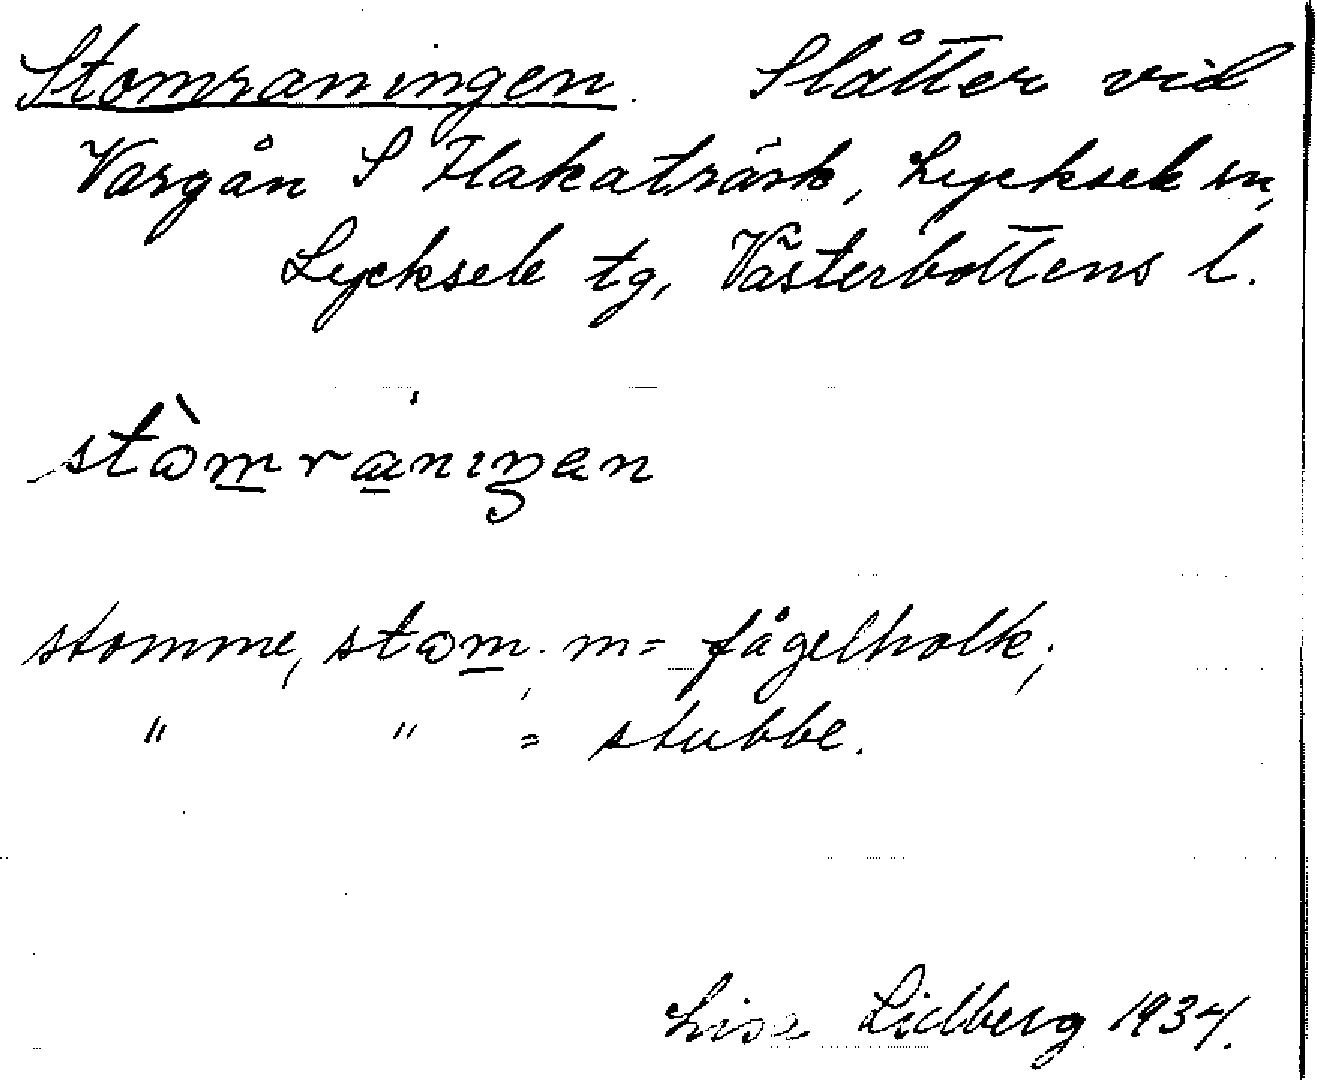 Stomraningen. Slåtter vid
Vargån S Flakaträsk, Lycksele sn,
Lycksele tg, Västerbottens l.
stòmraningan
stomme, stom. m = fågelholk;
" " = stubbe.
Lisa Lidberg 1934.